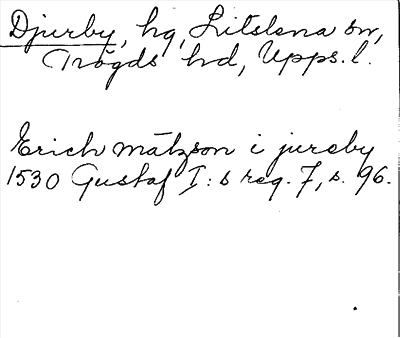 Djurby, hg, Litslena sn,
Trögds hd, Upps. l.
Erich mätzson i jureby
1530 Gustaf I:s reg. 7, s. 96.